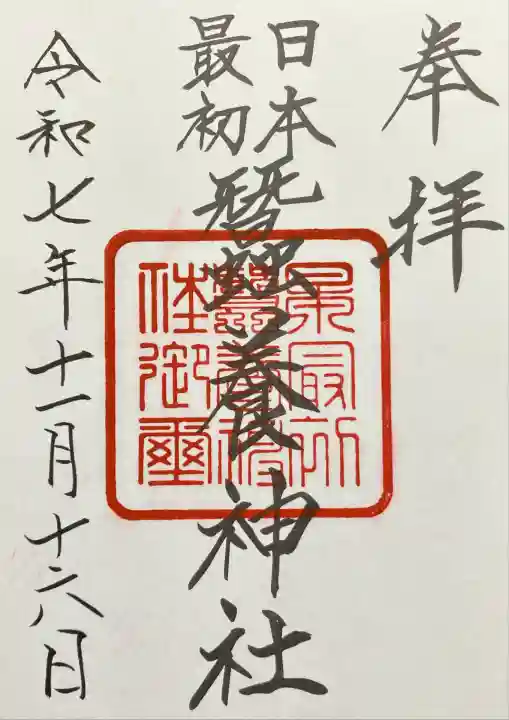 奉拝
日本
最初
蠶養神社
令和七年十一月十六日
最初
蠶養神
社御璽